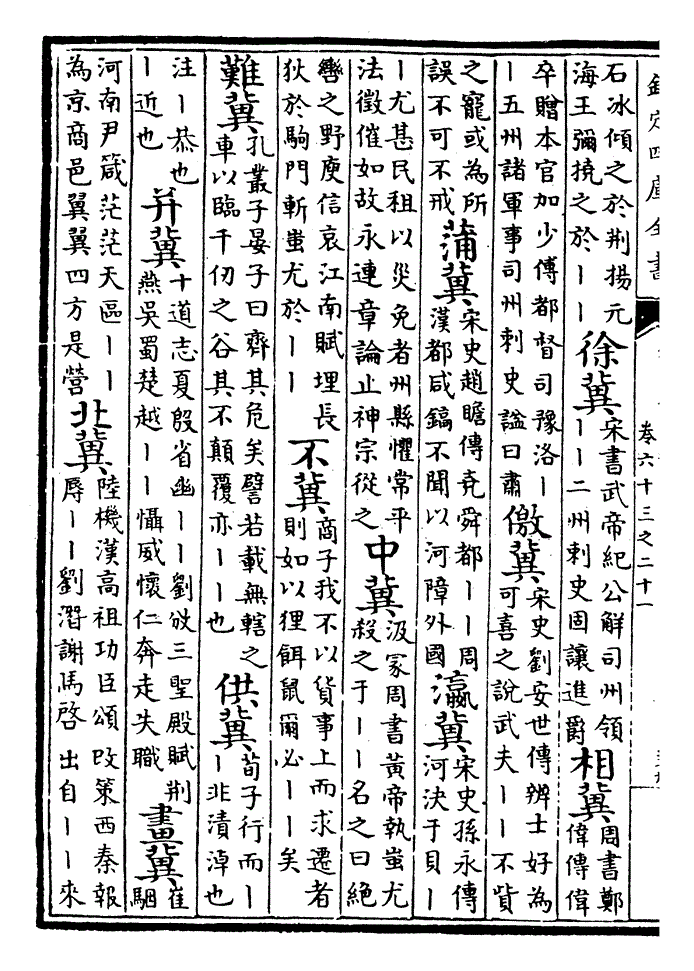 欽定四庫全書
卷六十三之二十一
石冰傾之於荆揚元
海王彌撓之於丨丨
徐冀
宋書武帝紀公解司州領
丨丨二州刺史固讓進爵
相冀
周書鄭
偉傳偉
卒贈本官加少傅都督司豫洛丨
丨五州諸軍事司州刺史諡曰肅
徼冀
宋史劉安世傳辨士好為
可喜之說武夫丨丨不貲
之寵或為所
誤不可不戒
蒲冀
宋史趙瞻傳堯舜都丨丨周
漢都咸鎬不聞以河障外國
瀛冀
宋史孫永傳
河決于貝丨
丨尤甚民租以災免者州縣懼常平
法徵催如故永連章論止神宗從之
中冀
汲冡周書黃帝執蚩尤
殺之于丨丨名之曰絕
轡之野庾信哀江南賦埋長
狄於駒門斬蚩尤於丨丨
不冀
商子我不以貨事上而求遷者
則如以狸餌鼠爾必丨丨矣
難冀
孔叢子晏子曰齊其危矣譬若載無轄之
車以臨千仞之谷其不顛覆亦丨丨也
供冀
荀子行而丨
丨非漬淖也
注丨恭也
丨近也
并冀
十道志夏殷省幽丨丨劉攽三聖殿賦荆
燕吳蜀楚越丨丨懾威懷仁奔走失職
畫冀
崔
駰
河南尹箴茫茫天區丨丨
為京商邑翼翼四方是營
北冀
陸機漢高祖功臣頌攺策西秦報
辱丨丨劉潛謝馬啓出自丨丨來